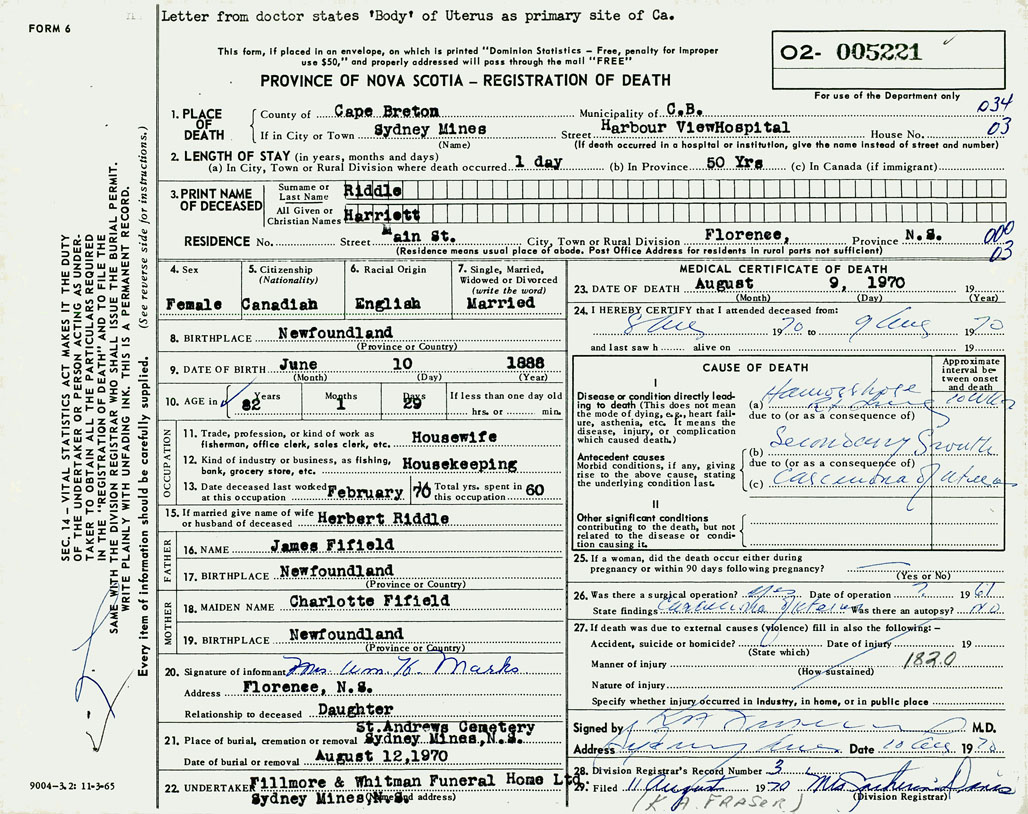 Letter from doctor states 'Body' of Uterus as primary site of Ca.
FORM 6
This form, if placed in an envelope, on which is printed "Dominion Statistics – Free, penalty for improper
use $50," and properly addressed will pass through the mail "FREE"
PROVINCE OF NOVA SCOTIA – REGISTRATION OF DEATH
02- 005221
For use of the Department only
034
03
1. PLACE OF DEATH
County of Cape Breton Municipality of C.B.
If in City or Town Sydney Mines Street Harbour ViewHospital House No.
(Name) (If death occurred in a hospital or institution, give the name instead of street and number)
2. LENGTH OF STAY (in years, months and days)
(a) In City, Town or Rural Division where death occurred 1 day (b) In Province 50 Yrs (c) In Canada (if immigrant)
3. PRINT NAME OF DECEASED
Surname or Last Name Riddle
All Given or Christian Names Harriett
RESIDENCE No. Street Main St. City, Town or Rural Division Florence, Province N.S.
(Residence means usual place of abode. Post Office Address for residents in rural parts not sufficient)
000
03
4. Sex
Female
5. Citizenship
(Nationality)
Canadian
6. Racial Origin
English
7. Single, Married,
Widowed or Divorced
(write the word)
Married
8. BIRTHPLACE Newfoundland
(Province or Country)
9. DATE OF BIRTH June 10 1888
(Month) (Day) (Year)
10. AGE in Years Months Days If less than one day old
82 1 29 hrs. or min.
OCCUPATION
11. Trade, profession, or kind of work as
fisherman, office clerk, sales clerk, etc. Housewife
12. Kind of industry or business, as fishing,
bank, grocery store, etc. Housekeeping
13. Date deceased last worked at this occupation February 70 Total yrs. spent in this occupation 60
15. If married give name of wife
or husband of deceased Herbert Riddle
FATHER
16. NAME James Fifield
17. BIRTHPLACE Newfoundland
(Province or Country)
MOTHER
18. MAIDEN NAME Charlotte Fifield
19. BIRTHPLACE Newfoundland
(Province or Country)
20. Signature of informant Mrs Wm. H. Marks
Address Florence, N.S.
Relationship to deceased Daughter
St.Andrews Cemetery
21. Place of burial, cremation or removal Sydney Mines,N.S.
Date of burial or removal August 12,1970
22. UNDERTAKER Fillmore & Whitman Funeral Home Ltd.
Sydney Mines,N.S.
(Name and address)
MEDICAL CERTIFICATE OF DEATH
23. DATE OF DEATH August 9, 1970 19
(Month) (Day) (Year)
24. I HEREBY CERTIFY that I attended deceased from:
8 Aug 1970 to 9 Aug 1970
and last saw h alive on 19
CAUSE OF DEATH
Approximate interval between onset and death
I
Disease or condition directly leading to death (This does not mean the mode of dying, e.g., heart failure, asthenia, etc. It means the disease, injury, or complication which caused death.)
(a) Hamorrhage
due to (or as a consequence of)
Antecedent causes
Morbid conditions, if any, giving rise to the above cause, stating the underlying condition last.
(b) Secondary Growth
due to (or as a consequence of)
(c) Carcinoma of uterus
II
Other significant conditions
contributing to the death, but not related to the disease or condition causing it.
25. If a woman, did the death occur either during
pregnancy or within 90 days following pregnancy?
(Yes or No)
26. Was there a surgical operation? yes Date of operation ? 1961
State findings Carcinoma of uterus Was there an autopsy? No
27. If death was due to external causes (violence) fill in also the following: –
Accident, suicide or homicide? Date of injury 19
(State which)
Manner of injury 1820
(How sustained)
Nature of injury
Specify whether injury occurred in industry, in home, or in public place
Signed by M.D.
Address Sydney Mines Date 10 Aug 1970
28. Division Registrar's Record Number 3
29. Filed 11 August 1970 Mrs Davis
(K A FRASER) (Division Registrar)
SEC. 14 – VITAL STATISTICS ACT MAKES IT THE DUTY
OF THE UNDERTAKER OR PERSON ACTING AS UNDER-
TAKER TO OBTAIN ALL THE PARTICULARS REQUIRED
IN THE "REGISTRATION OF DEATH" AND TO FILE THE
SAME WITH THE DIVISION REGISTRAR WHO SHALL ISSUE THE BURIAL PERMIT.
WRITE PLAINLY WITH UNFADING INK. THIS IS A PERMANENT RECORD.
Every item of information should be carefully supplied. (See reverse side for instructions.)
9004–3.2: 11-3-65